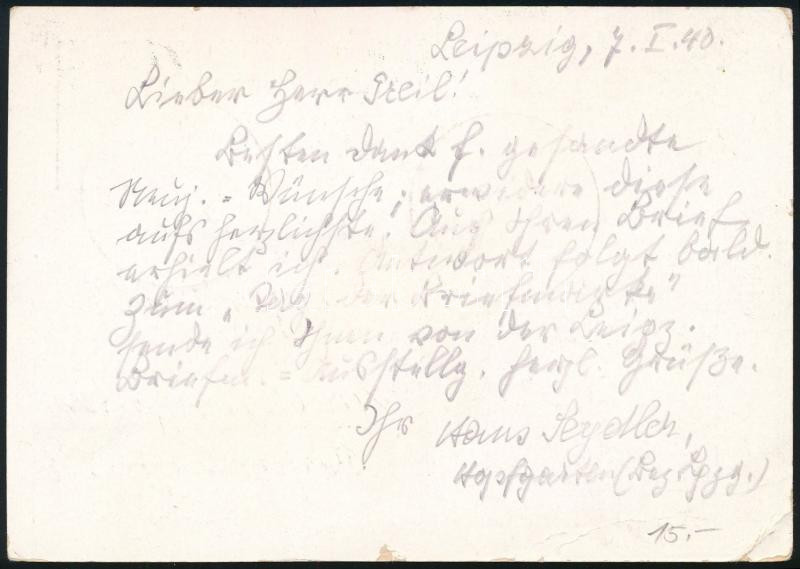 Leipzig, 7. I. 40.
Lieber Herr Greil!
Besten Dank f. gesandte
Neuj. = Wünsche, erwidere diese
aufs herzlichste! Auch Ihren Brief
erhielt ich. Antwort folgt bald.
Zum „Tag der Briefmarke"
sende ich Ihnen von der Leipz.
Briefm. = Ausstellg. herzl. Grüße.
Ihr Hans
Hopfgarten (Bez. Lpzg.)
15.-